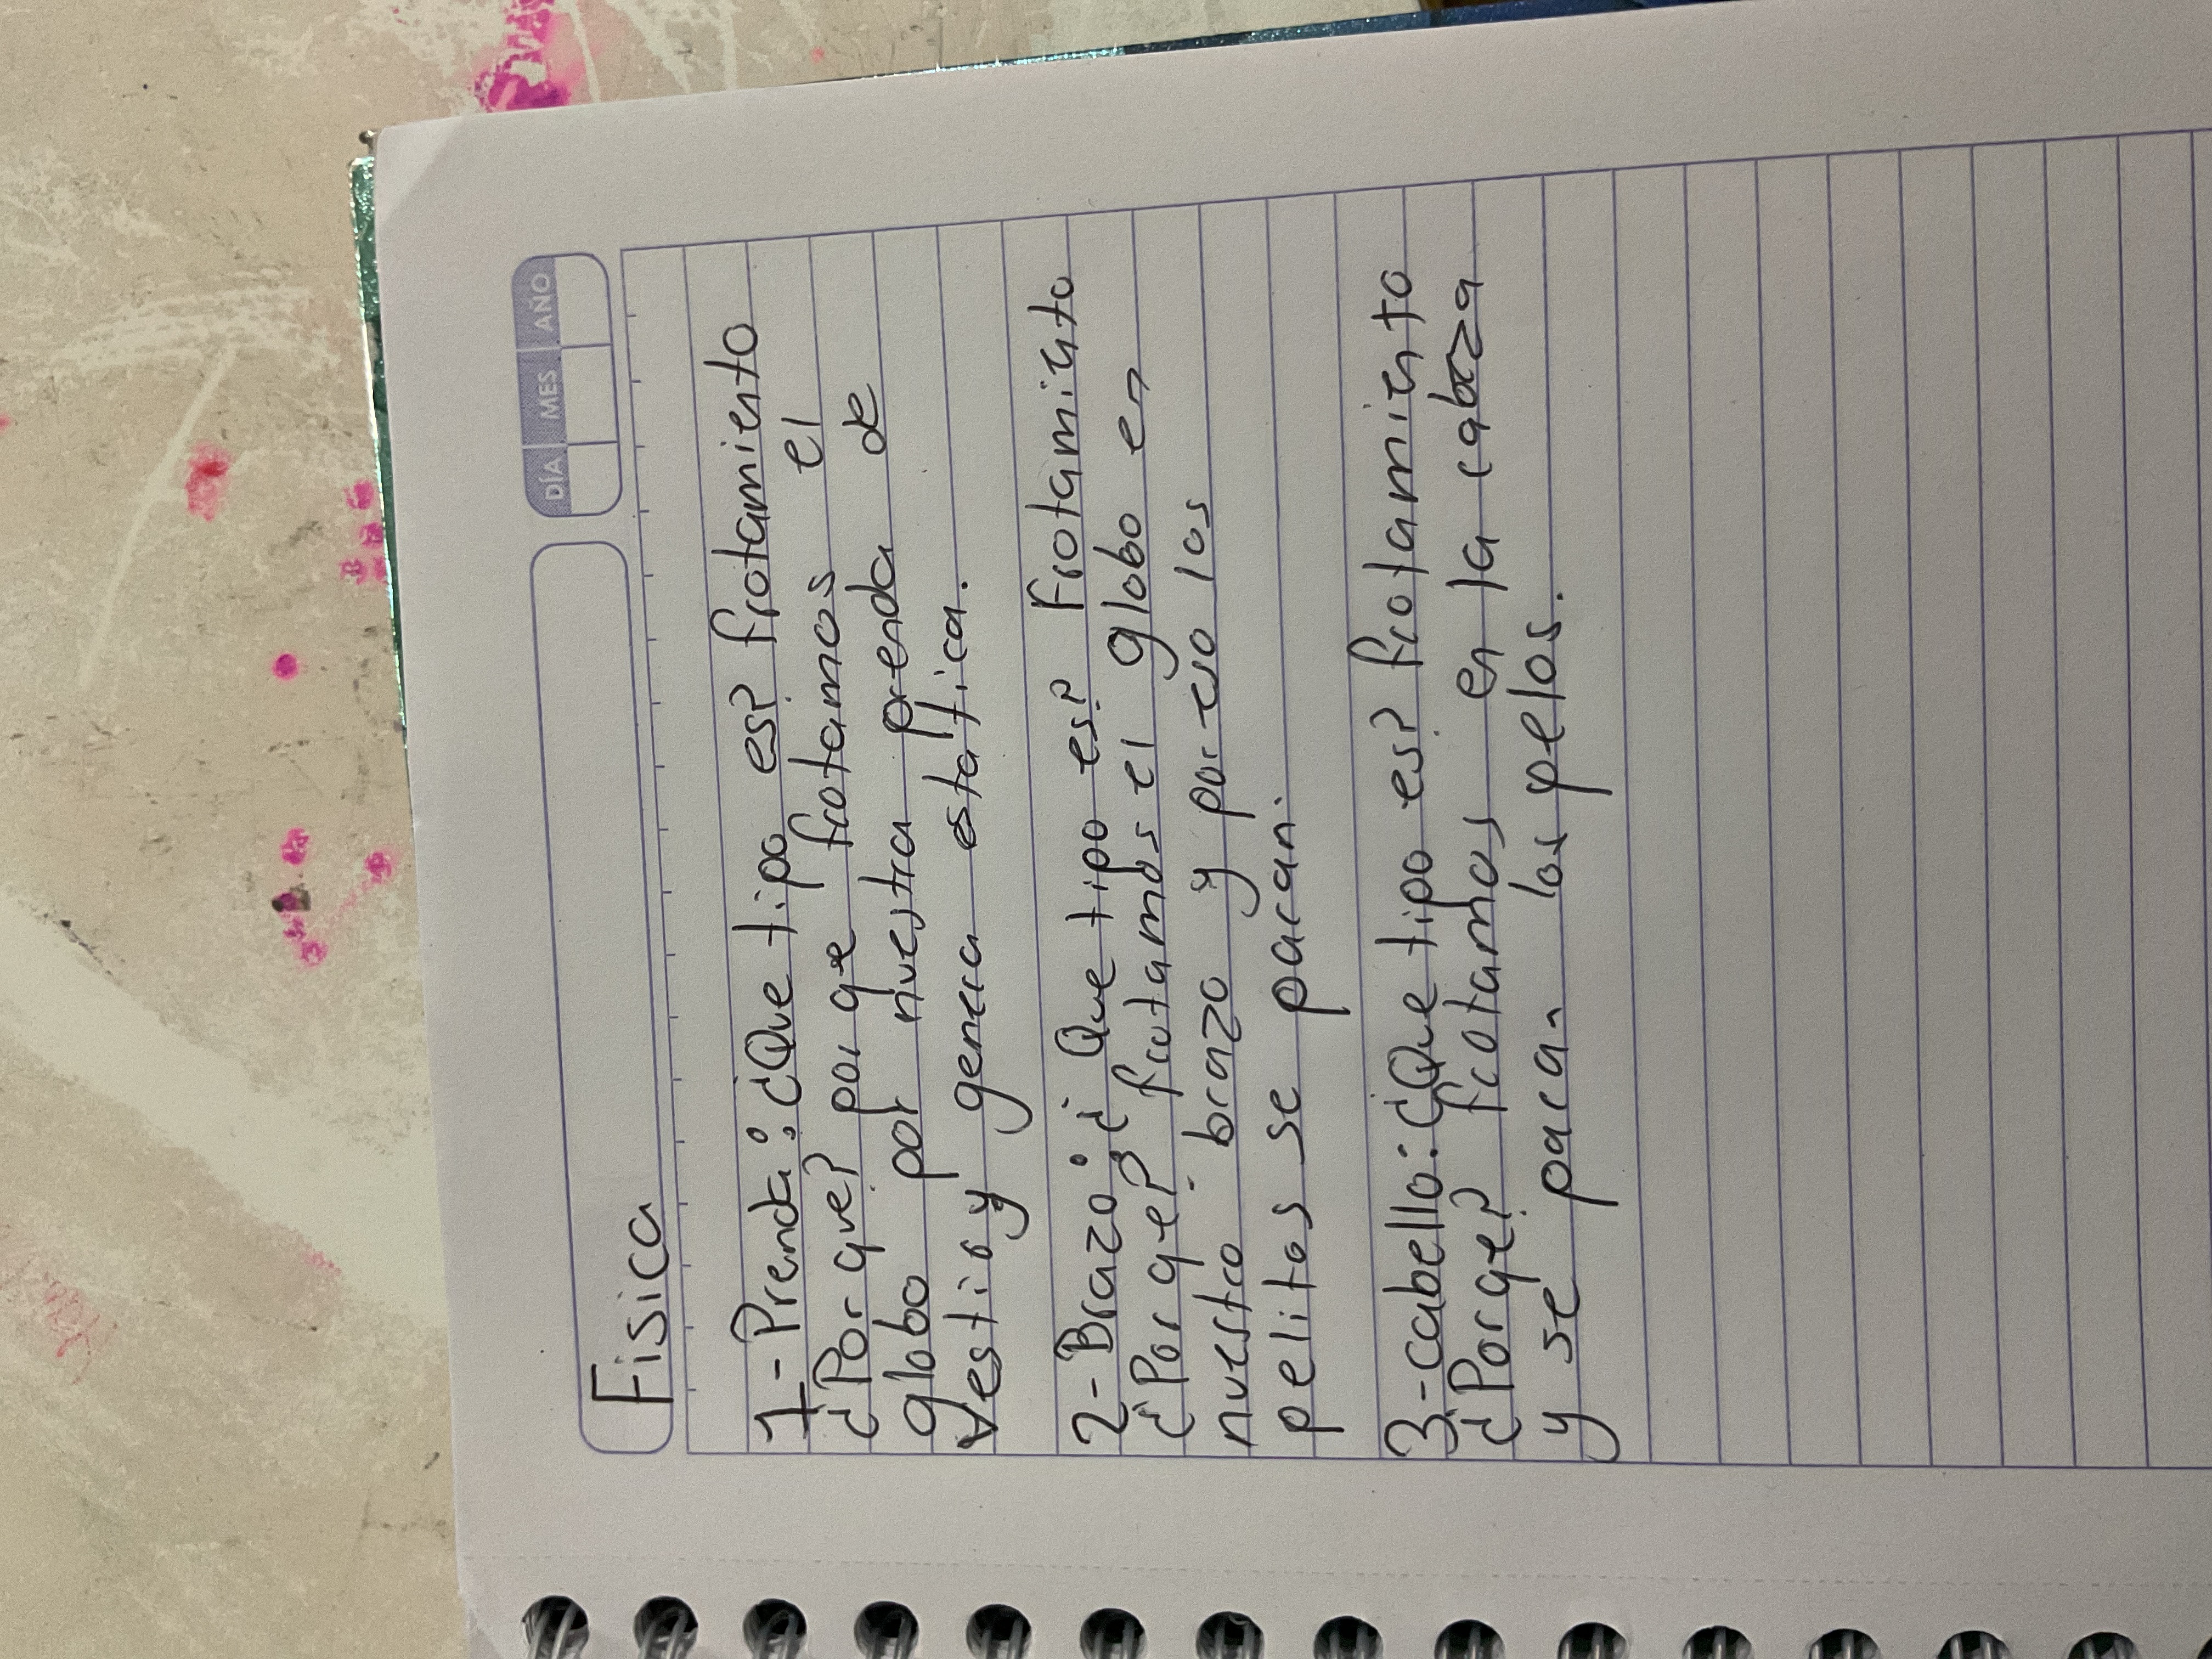 Fisica
DÍA MES AÑO
1-Prenda: ¿Que tipo es? frotamiento
¿Por que? por qe frotamos el
globo por nuestra prenda de
vestir y genera estattica.
2-Brazo: ¿Que tipo es? Frotamiento
¿Por qe? frotamos el globo en
nuestro brazo y por eso los
pelitos se paran.
3-cabello: ¿Que tipo es? frotamiento
¿Porqe? frotamos en la cabeza
y se paran los pelos.